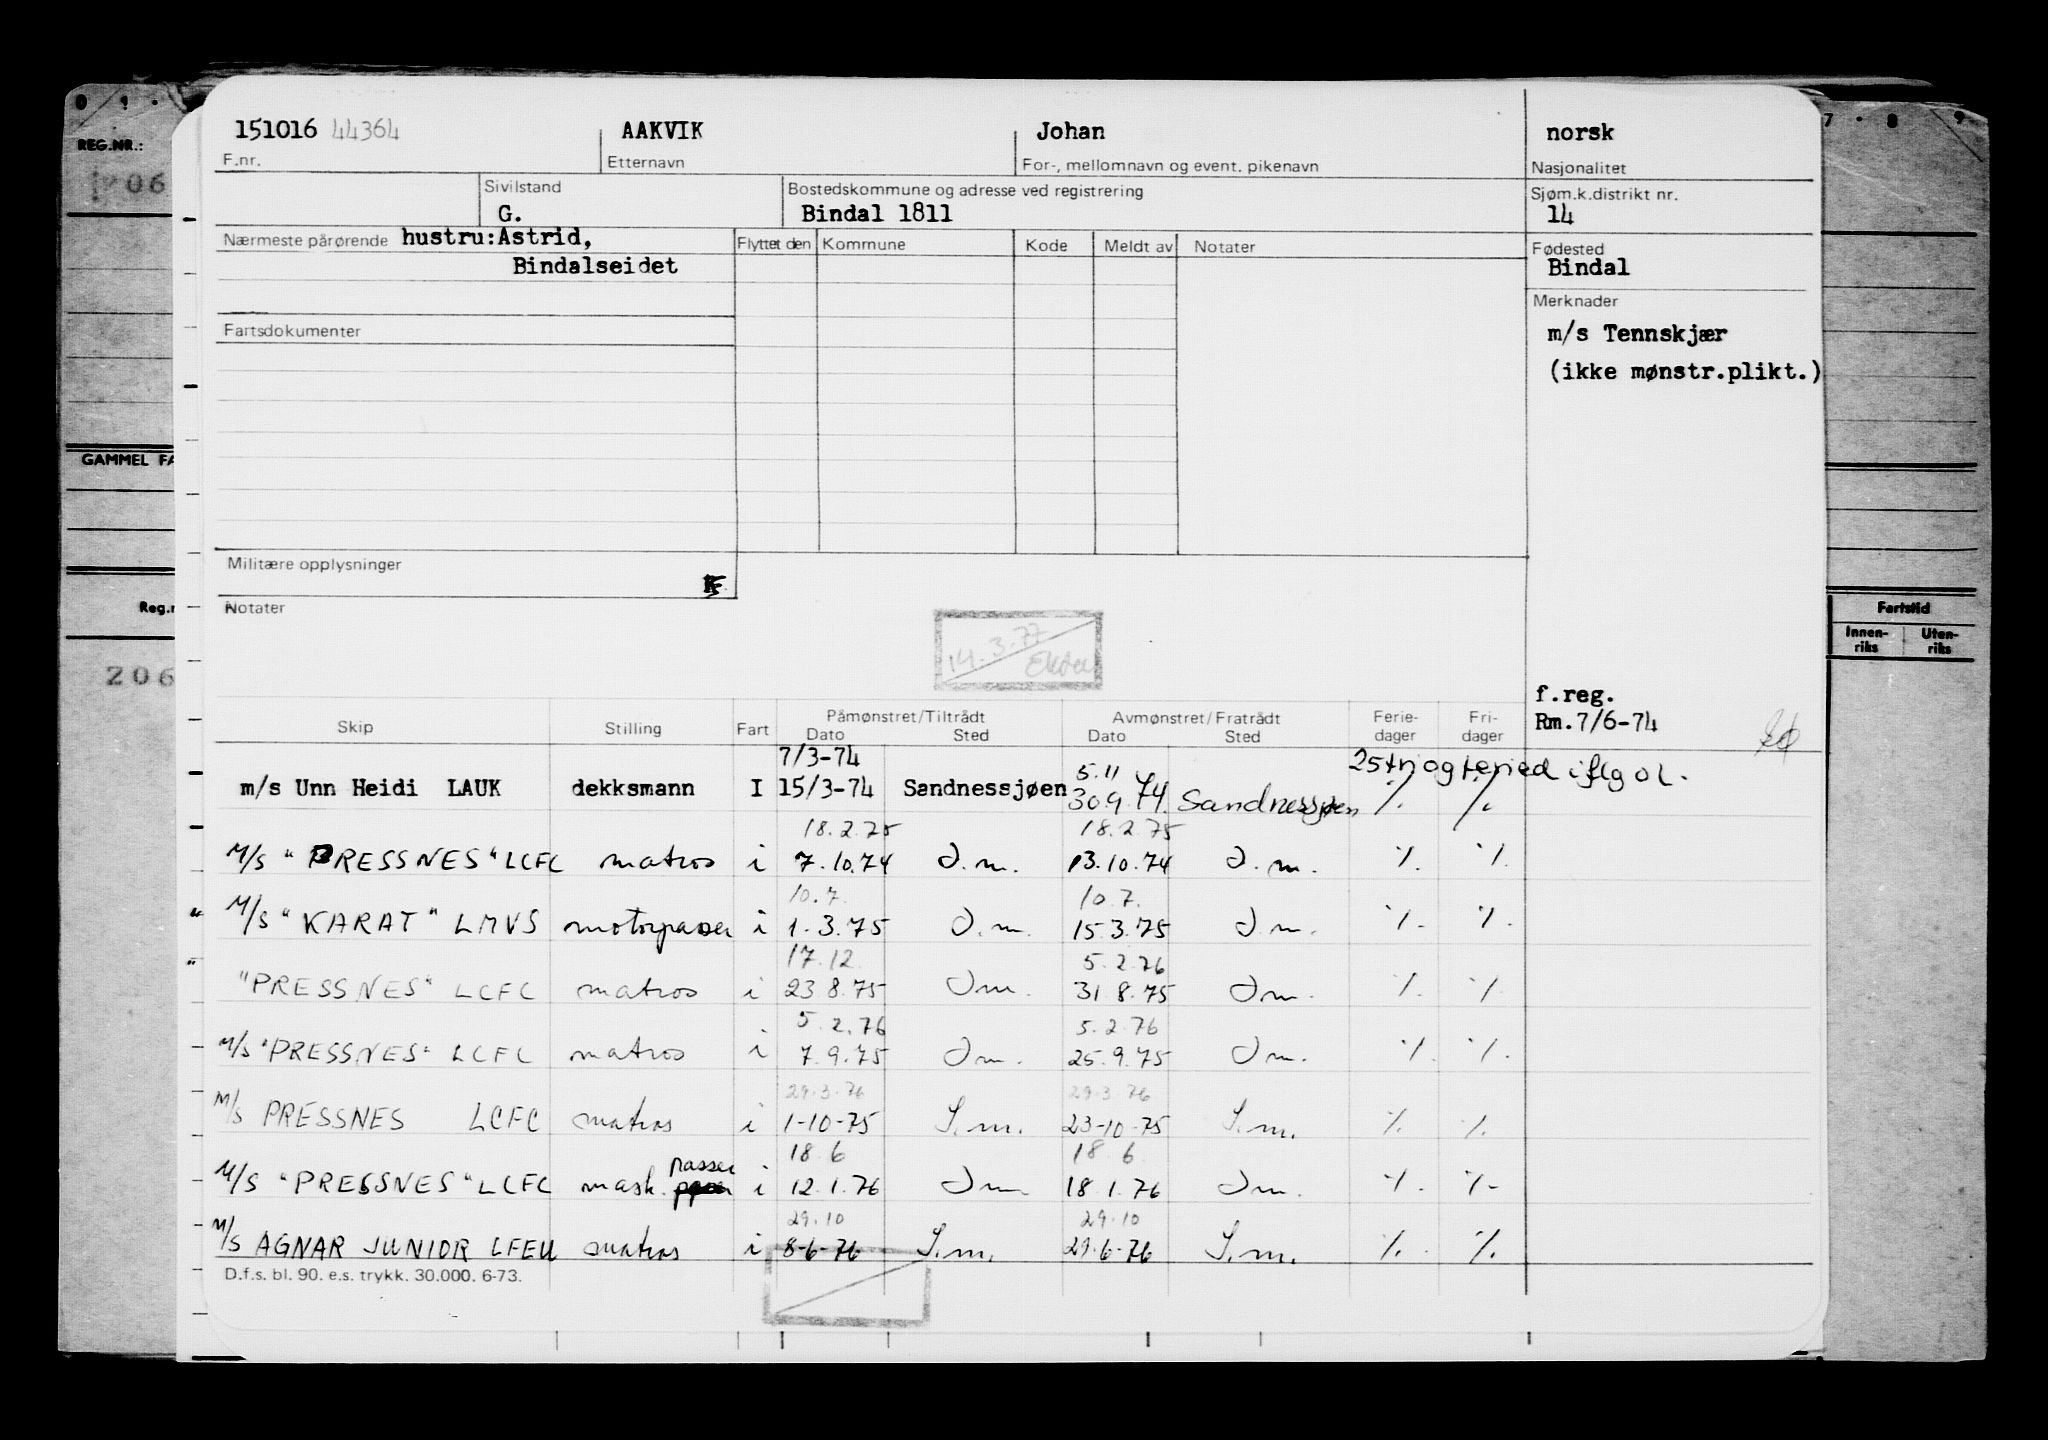 0 1 .
REG.NR.:
06
GAMMEL FA
Reg.n
206
7 . 8 9
Fartstid
Innen-
riks
Uten-
riks
151016 44364 AAKVIK Johan norsk
F.nr. Etternavn For-, mellomnavn og event. pikenavn Nasjonalitet
Sivilstand Bostedskommune og adresse ved registrering Sjøm.k.distrikt nr.
G. Bindal 1811 14
Nærmeste pårørende hustru:Astrid, Flyttet den Kommune Kode Meldt av Notater Fødested
Bindalseidet Bindal
Merknader
Fartsdokumenter m/s Tennskjær
(ikke mønstr.plikt.)
Militære opplysninger
Notater
14.3.77
f.reg.
Rm.7/6-74
Skip Stilling Fart Påmønstret/Tiltrådt Avmønstret/Fratrådt Ferie- Fri-
Dato Sted Dato Sted dager dager
7/3-74 5.11 25 fri og feried iflg OL.
m/s Unn Heidi LAUK dekksmann I 15/3-74 Sandnessjøen 30.9.74. Sandnessjøen ./. ./.
18.2.75 18.2.75
M/S "PRESSNES" LCFC matros i 7.10.74 S.m. 13.10.74 S.m. ./. ./.
10.7. 10.7.
" M/S "KARAT" LMVS motorpasser i 1.3.75 S.m. 15.3.75 S.m. ./. ./.
17.12. 5.2.76
" "PRESSNES" LCFC matros i 23.8.75 Sm. 31.8.75 Sm. ./. ./.
5.2.76 5.2.76
M/S "PRESSNES" LCFC matros i 7.9.75 Sm. 25.9.75 Sm. ./. ./.
29.3.76 29.3.76
M/S PRESSNES LCFC matros i 1-10-75 S.m. 23-10-75 S.m. ./. ./.
passer 18.6 18.6.
M/S "PRESSNES" LCFC mask. i 12.1.76 Sm 18.1.76 Sm. ./. ./.
29.10 29.10
M/S AGNAR JUNIOR LFEU matros i 8-6-76 S.m. 29.6-76 S.m. ./. ./.
D.f.s. bl. 90. e.s. trykk. 30.000. 6-73.